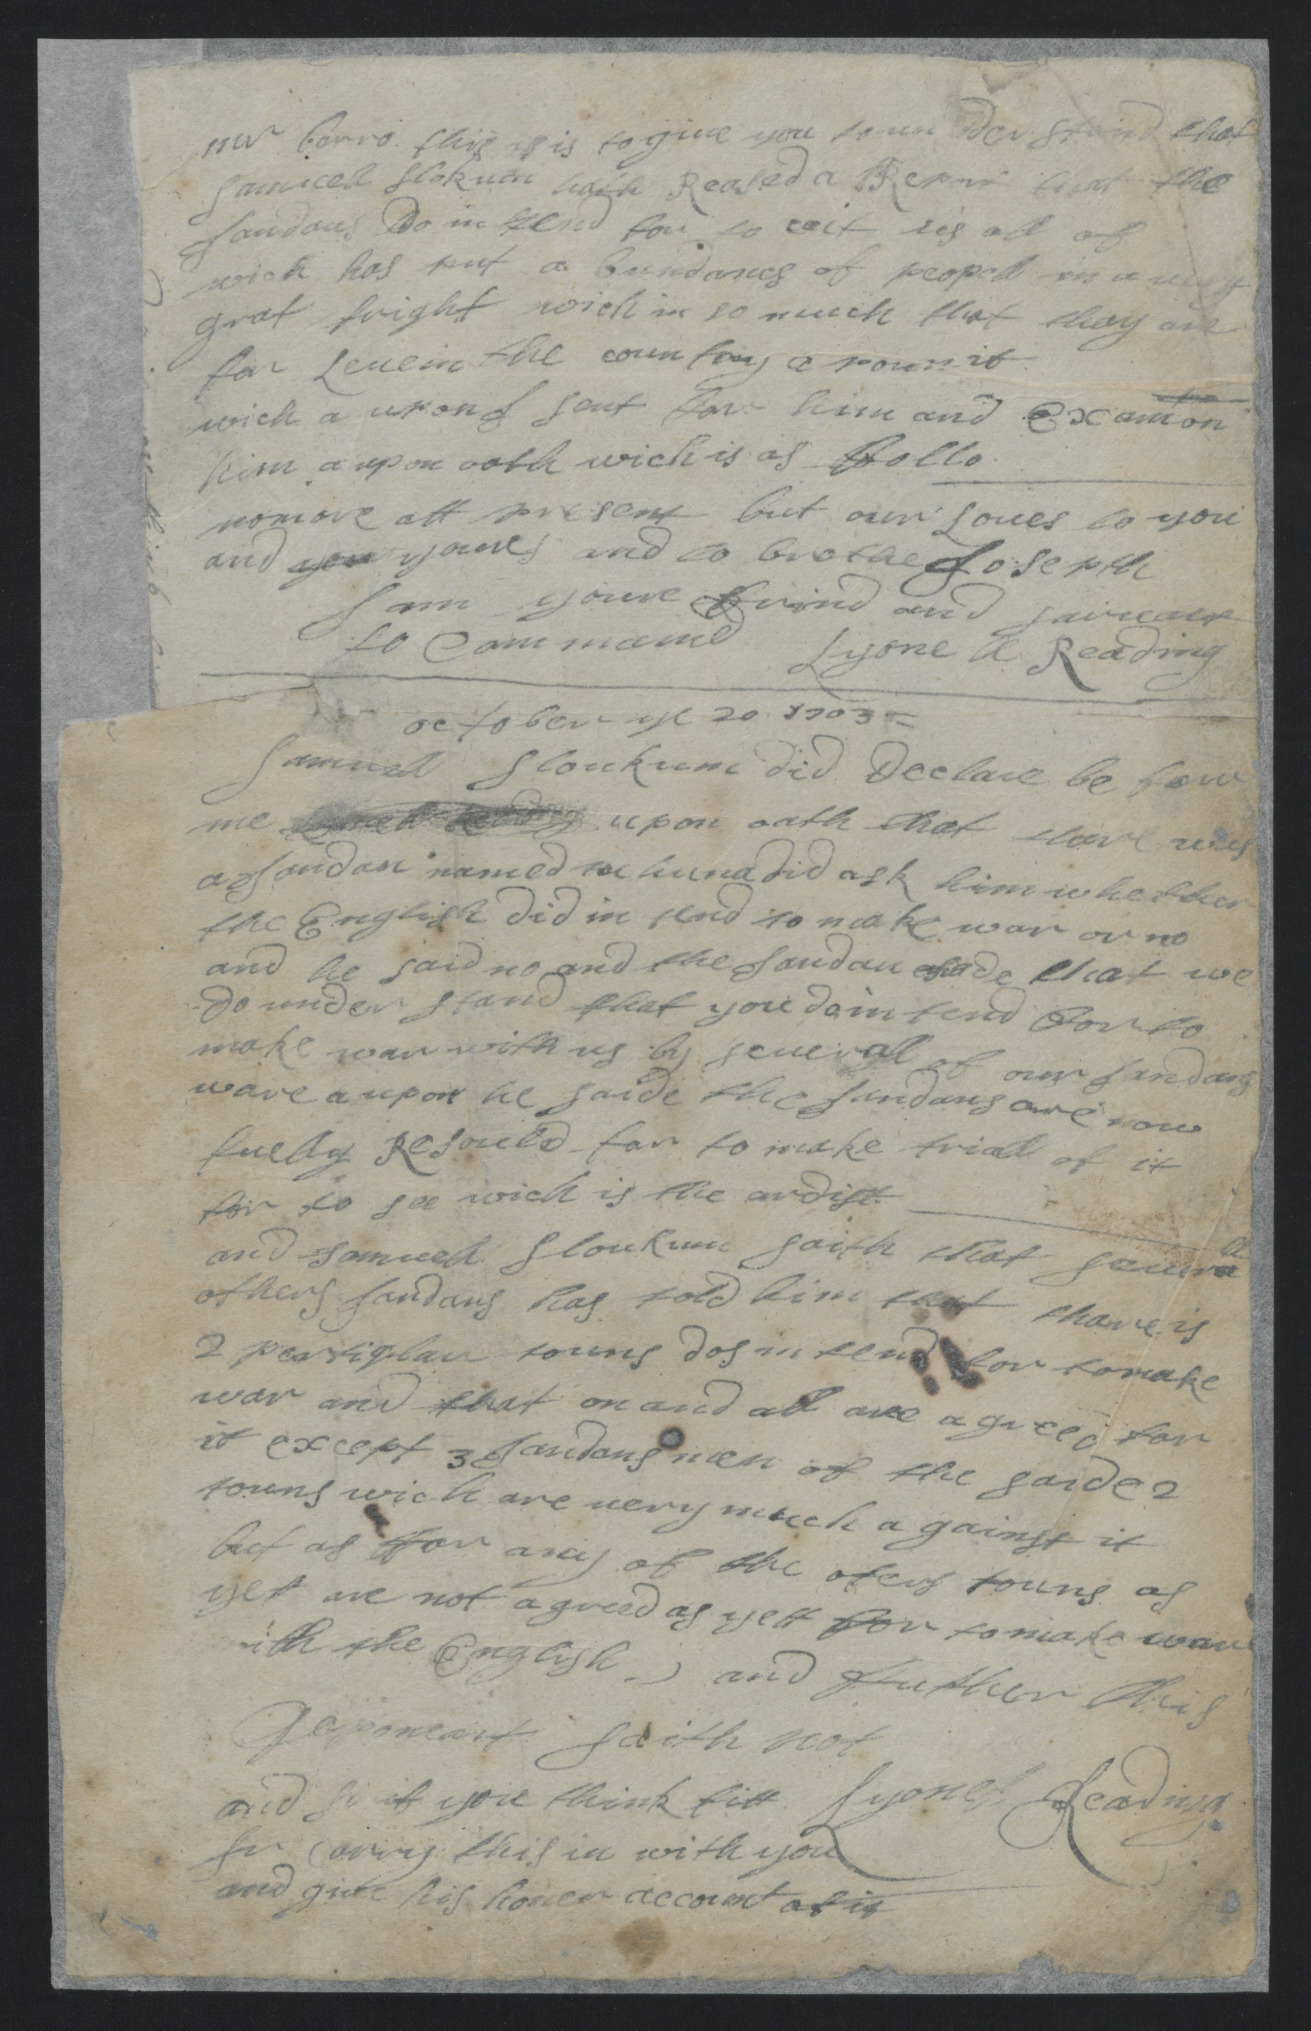 mr barro this is is to give you to un der stand that
Samuell Slokum hath Reased a Report that the
Jandans Do in tend for to cut us all of
wich has put a bundancs of pepell in a very
grat fright wich in so much that thay are
for Leuein the coun tray a roun it
wich a upon J sent for him and Examon
him a upon oath wich is as ffollo
nomore att present but our Loues to you
and you youres and to brothe Joseph
J am youre ffrind and sarvant
to Command Lyonell Reading
october ye 20 1703
Samuell Sloukum did Declare be fore
me upon oath that thare was
a Jandan named did ask him whether
the English did in tend to make war or no
and he said no and the Jandan saide that we
do under stand that you do in tend for to
make war with us by seuerall of our Jandans
ware a upon he saide the Jandans are now
fuelly Resould for to make triall of it
for to see wich is the ardist
and Samuell Sloukum saith that seuerall
others Jandans has told him that thare is
2 pertiqlar touns dos in tend for to make
war and that on and all are agreed for
it except 3 Jandans men of the saide 2
touns wich are uery much a gainst it
but as ffor any of the oters touns as
yet are not agreed as yett for to make ware
ith the English and ffuther this
Deponant saith not
and sr if you think fitt Lyonel Reading
sr Carry this in with you
and giue his honer account of it